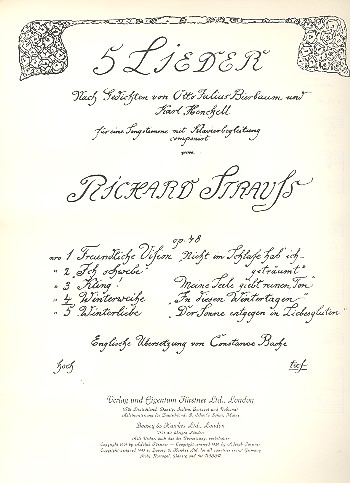 5 LIEDER
Nach Gedichten von Otto Julius Bierbaum und
Karl Henckell
für eine Singstimme mit Klavierbegleitung
componirt
von
RICHARD STRAUSS
op. 48
No 1 Freundliche Vision „Nicht im Schlafe hab' ich
geträumt"
" 2 Ich schwebe
" 3 Kling! „Meine Seele giebt reinen Ton"
" 4 Winterweihe „In diesen Wintertagen"
" 5 Winterliebe „Der Sonne entgegen in Liebesgluten"
Englische Übersetzung von Constance Bache
hoch tief
Verlag und Eigentum Fürstner Ltd., London
Boosey & Hawkes Ltd., London